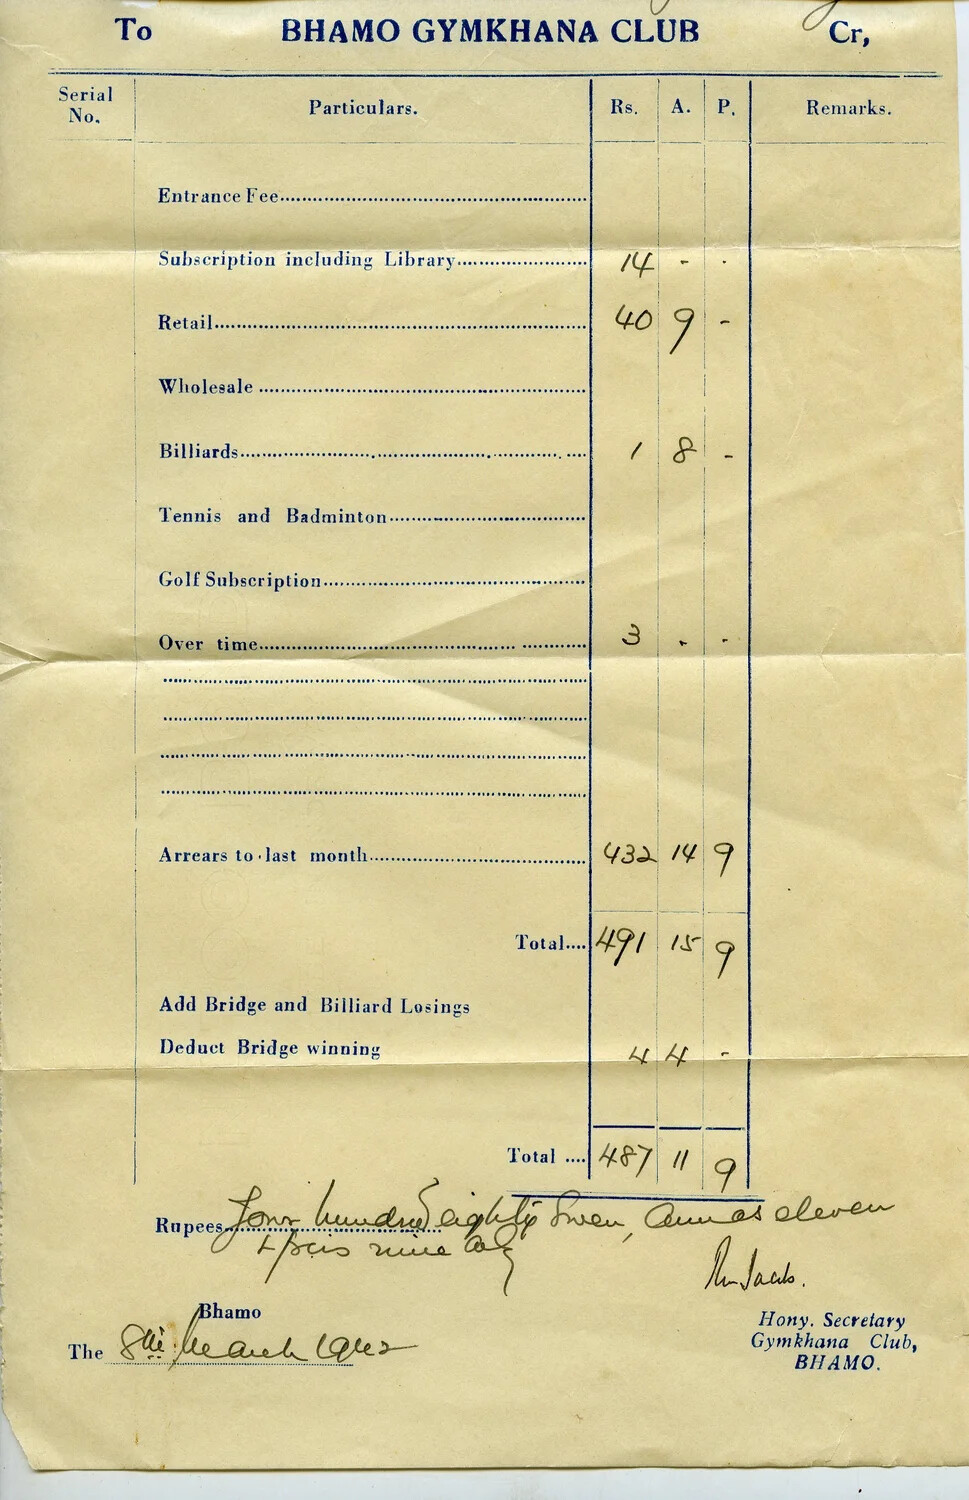 To BHAMO GYMKHANA CLUB Cr,
Serial No. Particulars. Rs. A. P. Remarks.
Entrance Fee
Subscription including Library 14 - -
Retail 40 9 -
Wholesale
Billiards 1 8 -
Tennis and Badminton
Golf Subscription
Over time 3 - -
Arrears to last month 432 14 9
Total 491 15 9
Add Bridge and Billiard Losings
Deduct Bridge winning 4 4 -
Total 487 11 9
Rupees Four hundred eighty seven, annas eleven
+ pies nine only
Bhamo
Hony. Secretary
The 8th March 1942
Gymkhana Club,
BHAMO.